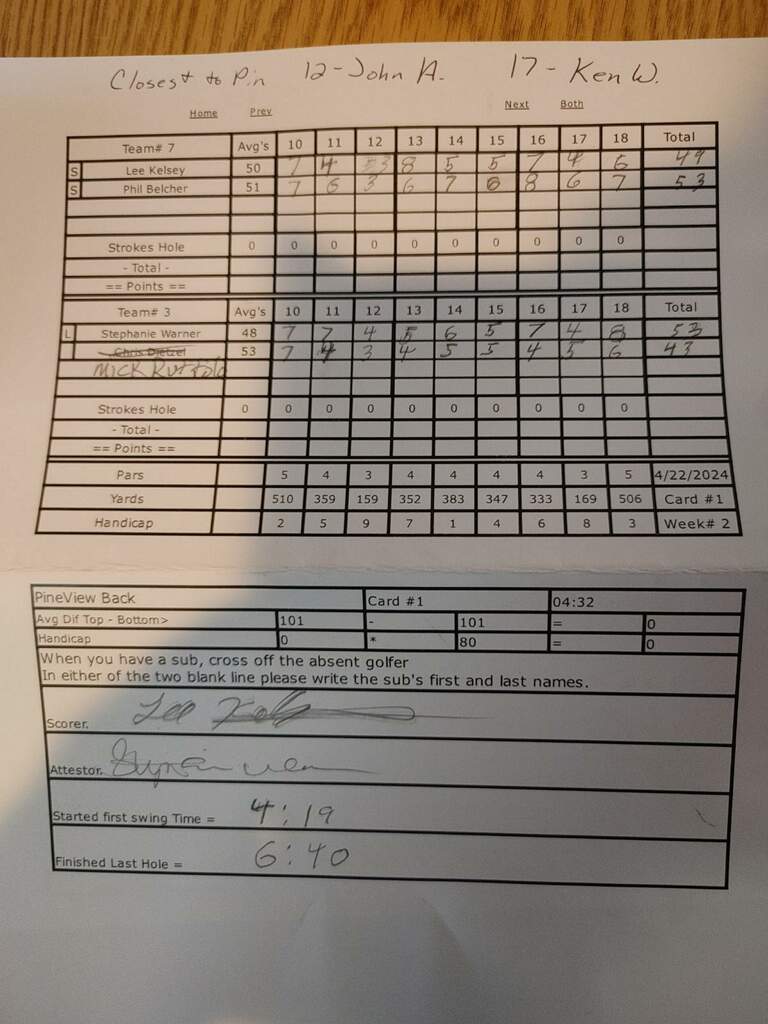 Closest to Pin 12-John A. 17-Ken W.
Home Prev Next Both
Team# 7 Avg's 10 11 12 13 14 15 16 17 18 Total
S Lee Kelsey 50 7 4 3 8 5 5 7 4 6 49
S Phil Belcher 51 7 6 3 6 7 6 8 6 7 53
Strokes Hole 0 0 0 0 0 0 0 0 0 0
- Total -
== Points ==
Team# 3 Avg's 10 11 12 13 14 15 16 17 18 Total
L Stephanie Warner 48 7 7 4 5 6 5 7 4 8 53
Chris Dietzel 53 7 4 3 4 5 5 4 5 6 43
Mick
Strokes Hole 0 0 0 0 0 0 0 0 0 0
- Total -
== Points ==
Pars 5 4 3 4 4 4 4 3 5 4/22/2024
Yards 510 359 159 352 383 347 333 169 506 Card #1
Handicap 2 5 9 7 1 4 6 8 3 Week# 2
PineView Back Card #1 04:32
Avg Dif Top - Bottom> 101 - 101 = 0
Handicap 0 * 80 = 0
When you have a sub, cross off the absent golfer
In either of the two blank line please write the sub's first and last names.
Scorer. Lee
Attestor.
Started first swing Time = 4:19
Finished Last Hole = 6:40